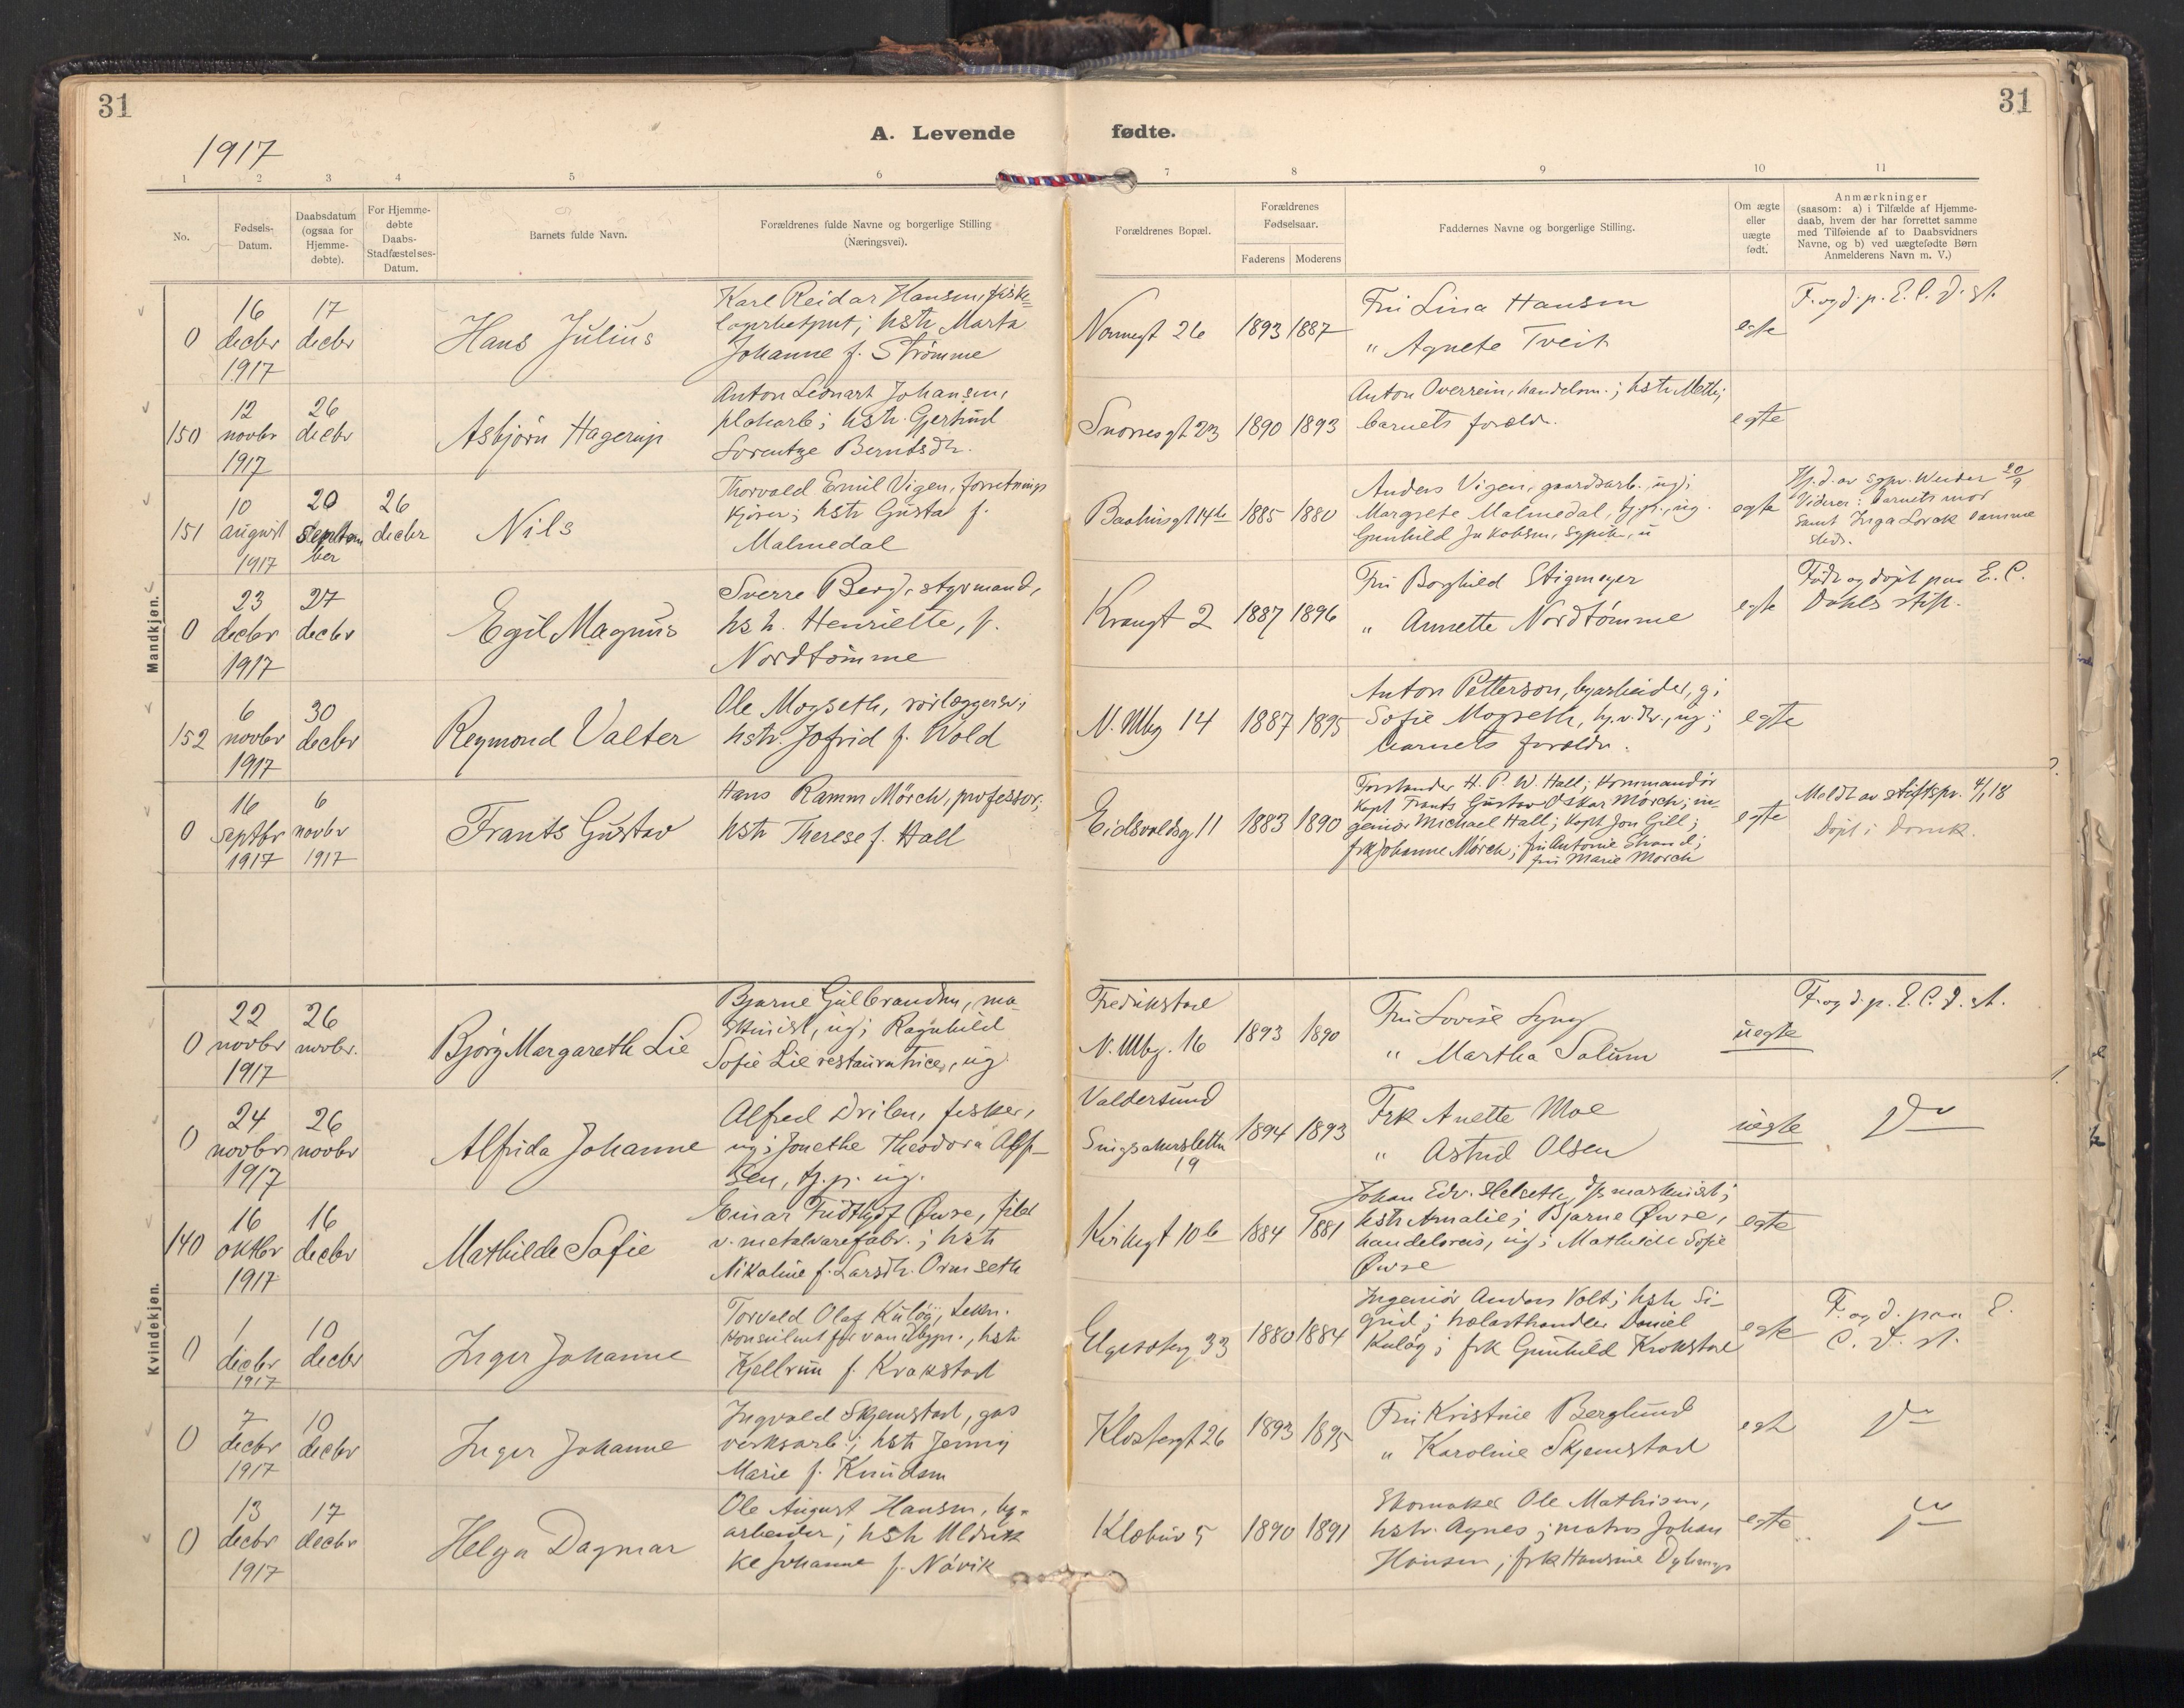 31
31
1917
A. Levende fødte.
1 2 3 4 5 6 7 8 9 10 11
No.
Fødsels-
Datum.
Daabsdatum
(ogsaa for
Hjemme-
døbte).
For Hjemme-
døbte
Daabs-
Stadfæstelses-
Datum.
Barnets fulde Navn.
Forældrenes fulde Navne og borgerlige Stilling
(Næringsvei).
Forældrenes Bopæl.
Forældrenes
Fødselsaar.
Faderens Moderens
Faddernes Navne og borgerlige Stilling.
Om ægte
eller
uægte
født.
Anmærkninger
(saasom: a) i Tilfælde af Hjemme-
daab, hvem der har forrettet samme
med Tilføiende af to Daabsvidners
Navne, og b) ved uægtefødte Børn
Anmelderens Navn m. V.)
Mandkjøn.
0
16
decbr
1917
17
decbr
Hans Julius
Karl Reidar Hansen, fiske-
hstr Marta
Johanne f. Strømme
26
1893 1887
Fru Lina Hansen
" Agnete Tveit
egte
F. og d. p. E. C. D. st.
150
12
novbr
1917
26
decbr
Asbjørn Hagerup
Anton Leonart Johansen,
hstr. Gjertrud
Lorentze Berntsdtr.
Snorresgt 23
1890 1893
Anton Overrein, handelsm.; hstr
barnets foreldr.
egte
151
10
august
1917
20
septem
ber
26
decbr
Nils
Thorvald Emil Vigen, forretnings
kjører; hstr Gusta f.
Malmedal
14b
1885 1880
Anders Vigen, gaardsarb., ug;
Margrete Malmedal, tj.p., ug.
Gunhild Jakobsen, sypike, u
egte
Hj. d. av sgpr. 20/9
Vidner: barnets mor
samt Inga samme
sted.
0
23
decbr
1917
27
decbr
Egil Magnus
Sverre Berg, styrmand,
hsh. Henriette, f.
Nordtømme
Krambgt 2
1887 1896
Fru Borghild Stigmeyer
" Annette Nordtømme
egte
Født og døpt paa E. C.
Dahls stift.
152
6
novbr
1917
30
decbr
Reymond Valter
Ole Mogseth, rørlæggersv;
hstr. Jofrid f. Wold
N. Mbg 14
1887 1895
Anton Petterson, byarbeider, g;
Sofie Mogseth, ug;
barnets foreldr.
egte
0
16
septbr
1917
6
novbr
1917
Frants Gustav
Hans Ramm Mörch, professor;
hstr Therese f. Hall
Eidsvoldsg 11
1883 1890
Forstander H. P. W. Hall; Kommandør
Kapt Frants Gustav Oskar Mörch; in-
geniør Michael Hall; Kapt Jon Gill;
frk Johanne Mörch; fru Antonie Strand;
fru Marie Mörch
egte
Meldt av stiftspr. 4/1 18
Døpt i domk.
Kvindekjøn.
0
22
novbr
1917
26
novbr.
Bjørg Margareth Lie
Bjarne Gulbrandsen, ma-
skinist, ug; Ragnhild
Sofie Lie restauratrice, ug
Fredrikstad
N. Mbg. 16
1893 1890
Fru Lovise Lyng
" Martha Solum
uegte
F. og d. p. E. C. D. st.
0
24
novbr
1917
26
novbr
Alfrida Johanne
Alfred Drilen, fisker,
ug; Jonethe Theodora
sen, tj. p. ug.
Valdersund
Singsakersletta
19
1894 1893
Frk Anette Moe
" Astrid Olsen
uegte
Do
140
16
oktbr
1917
16
decbr
Mathilde Sofie
Einar Fridthjof Øwre, filer
v. metalvarefabr.; hstr
Nikoline f. Larsdtr. Ormseth
Kirkegt 10b
1884 1881
Johan Edv. Helseth, maskinist;
hstr Amalie; Bjarne Øwre,
handelsreis, ug; Mathilde Sofie
Øwre
egte
0
1
decbr
1917
10
decbr
Inger Johanne
Torvald Olaf Kuløy, tekn.
konsulent for vandbygn., hstr
Kjellrun f. Krokstad
33
1880 1884
Ingeniør Anders Volt; hstr Si-
grid; trælasthandler Daniel
Kuløy; frk Gunhild Krokstad
egte
F. og d. paa E.
C. D. st.
0
7
decbr
1917
10
decbr
Inger Johanne
Ingvald Skjemstad, gas
verksarb.; hstr Jenny
Marie f. Knudsen
Klostergt 26
1893 1895
Fru Kristine Berglund
" Karoline Skjemstad
egte
Do
0
13
decbr
1917
17
decbr
Helga Dagmar
Ole August Hansen, by-
arbeider; hstr Uldrik
ke Johanne f. Növik
Klæbuv 5
1890 1891
Skomaker Ole Mathisen,
hstr. Agnes; matros Johan
Hansen; frk Hansine
egte